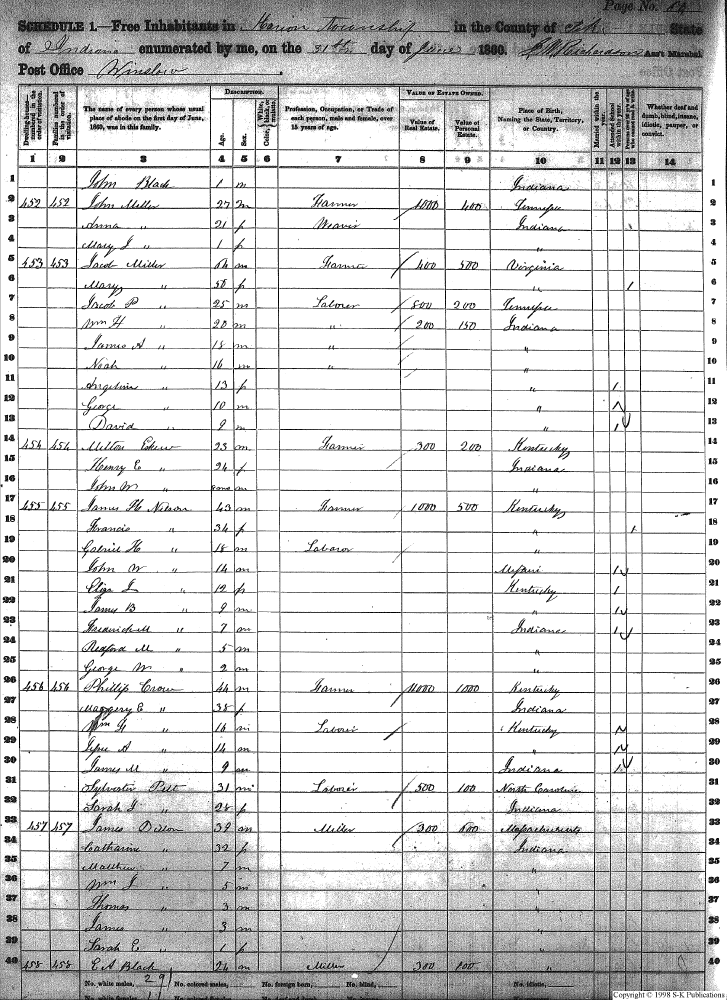 Page No.
SCHEDULE 1.—Free Inhabitants in Marion Township in the County of Pike State
of Indiana enumerated by me, on the day of June 1860. Richardson Ass't Marshal
Post Office Winslow.
Dwelling-houses—numbered in the order of visitation.
Families numbered in the order of visitation.
The name of every person whose usual place of abode on the first day of June, 1860, was in this family.
DESCRIPTION.
Age.
Sex.
Color, White, black, or mulatto.
Profession, Occupation, or Trade of each person, male and female, over 15 years of age.
VALUE OF ESTATE OWNED.
Value of Real Estate.
Value of Personal Estate.
Place of Birth, Naming the State, Territory, or Country.
Married within the year.
Attended School within the year.
Persons over 20 y'rs of age who cannot read & write.
Whether deaf and dumb, blind, insane, idiotic, pauper, or convict.
1 2 3 4 5 6 7 8 9 10 11 12 13 14
1 John Black 1 m Indiana 1
2 452 452 John Miller 27 m Farmer 1000 400 Tennessee 2
3 Anna " 21 f Weaver Indiana 3
4 Mary J " 1 f " 4
5 453 453 Jacob Miller 64 m Farmer 400 500 Virginia 5
6 Mary " 56 f " 1 6
7 Jacob P " 25 m Laborer 800 200 Tennessee 7
8 Wm H " 20 m " 200 150 Indiana 8
9 James A " 18 m " " 9
10 Noah " 16 m " " 10
11 Angeline " 13 f " 1 11
12 George " 10 m " 1 12
13 David " 9 m " 1 13
14 454 454 Milton Eskew 23 m Farmer 300 200 Kentucky 14
15 Henry E " 24 f Indiana 15
16 John W " m " 16
17 455 455 James H Nelson 43 m Farmer 1000 500 Kentucky 17
18 Francis " 34 f " 1 18
19 Gabriel H " 18 m Laborer " 19
20 John W " 14 m Missouri 1 20
21 Eliza J " 12 f Kentucky 1 21
22 James B " 9 m " 1 22
23 Frederick M " 7 m Indiana 1 23
24 Redford M " 5 m " 24
25 George W " 2 m " 25
26 456 456 Phillip Crow 44 m Farmer 4000 1000 Kentucky 26
27 Maggery E " 38 f Indiana 27
28 Wm H " 16 m Laborer Kentucky 1 28
29 Jesse A " 14 m " 1 29
30 James M " 9 m Indiana 1 30
31 Sylvester Pelt 31 m Laborer 500 100 North Carolina 31
32 Sarah J " 28 f Indiana 32
33 457 457 James Dillon 39 m Miller 300 600 Massachusetts 33
34 Catharine " 32 f Indiana 34
35 Matthew " 7 m " 35
36 Wm J " 5 m " 36
37 Thomas " 3 m " 37
38 James " 3 m " 38
39 Sarah E " 1 f " 39
40 458 458 E A Black 24 m Miller 300 100 " 40
No. white males, 29 No. colored males, No. foreign born, No. blind, No. idiotic,
No. white females,
Copyright © 1998 S-K Publications